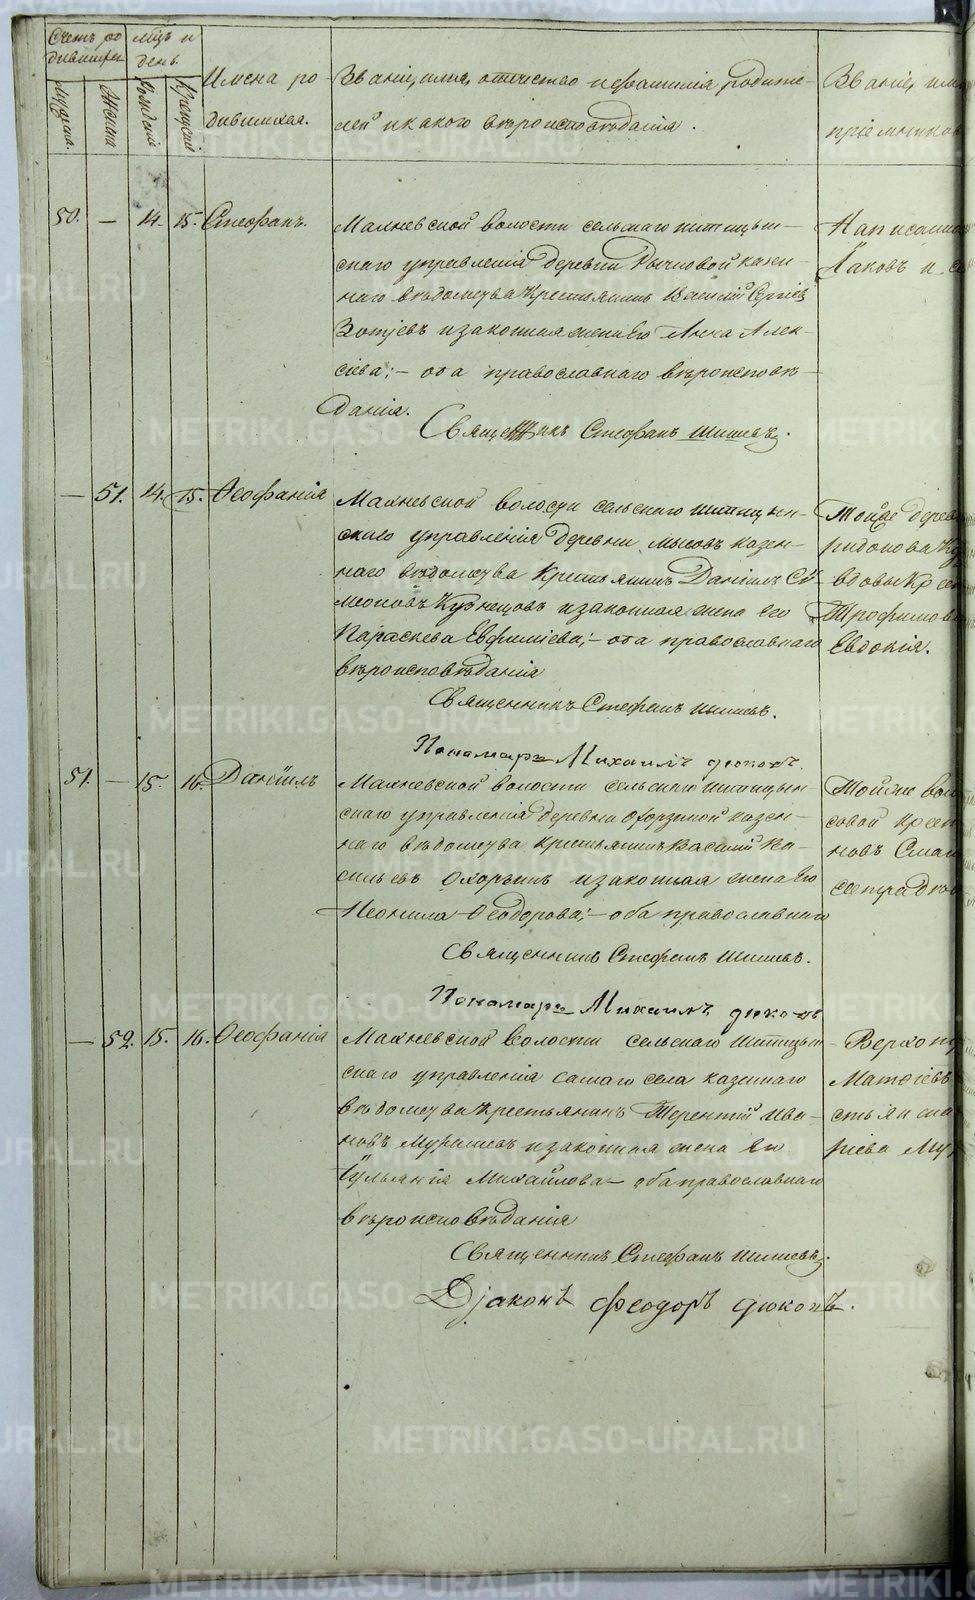 Счетъ ро
дившихся
Мѣц и
день
Мужеска.
Женска
Рожденія
Крещенія
Имена ро
дившихся.
Званіе, имя, отчество и фамилія родите-
лей и какого вѣроисповѣданія.
Званіе, имя
пріемников
50. — 14. 15. Стефанъ.
Махневской волости сельскаго шипицын-
скаго управленія деревни казен-
наго вѣдомства Крестьянинъ Василій Сергіевъ
Зотіевъ и законная жена его Анна Алек-
сіева; — оба православнаго вѣроисповѣ-
данія.
Священникъ Стефанъ Шишевъ.
Написанн
Іаковъ и
— 51. 14. 15. Ѳеофанія
Махневской волости сельскаго шипицын-
скаго управленія деревни Мысовъ казен-
наго вѣдомства Крестьянинъ Даніилъ Си-
меоновъ Кузнецовъ и законная жена его
Параскева Евфиміева, — оба православнаго
вѣроисповѣданія
Священникъ Стефанъ Шишевъ.
Пономарь Михаилъ Дюковъ.
Тойже дерев
ридонова Куз
вдовы Крест
Трофимова
Евдокія.
51. — 15. 16. Даніилъ
Махневской волости сельскаго шипицын-
скаго управленія деревни Охорзиной казен-
наго вѣдомства Крестьянинъ Василій Ва-
сильевъ Охорзинъ и законная жена его
Неонила Ѳеодорова; — оба православнаго
Священникъ Стефанъ Шишевъ.
Пономарь Михаилъ Дюковъ
Тойже вол
совой Крест
новъ
— 52. 15. 16. Ѳеофанія
Махневской волости сельскаго шипицын-
скаго управленія самаго села казеннаго
вѣдомства Крестьянинъ Терентій Ива-
новъ и законная жена его
Іульянія Михайлова — оба православнаго
вѣроисповѣданія
Священникъ Стефанъ Шишевъ.
Діаконъ Феодоръ Дюковъ.
Верхот
Матѳіевъ
стьянска
ріева Му
METRIKI.GASO-URAL.RU